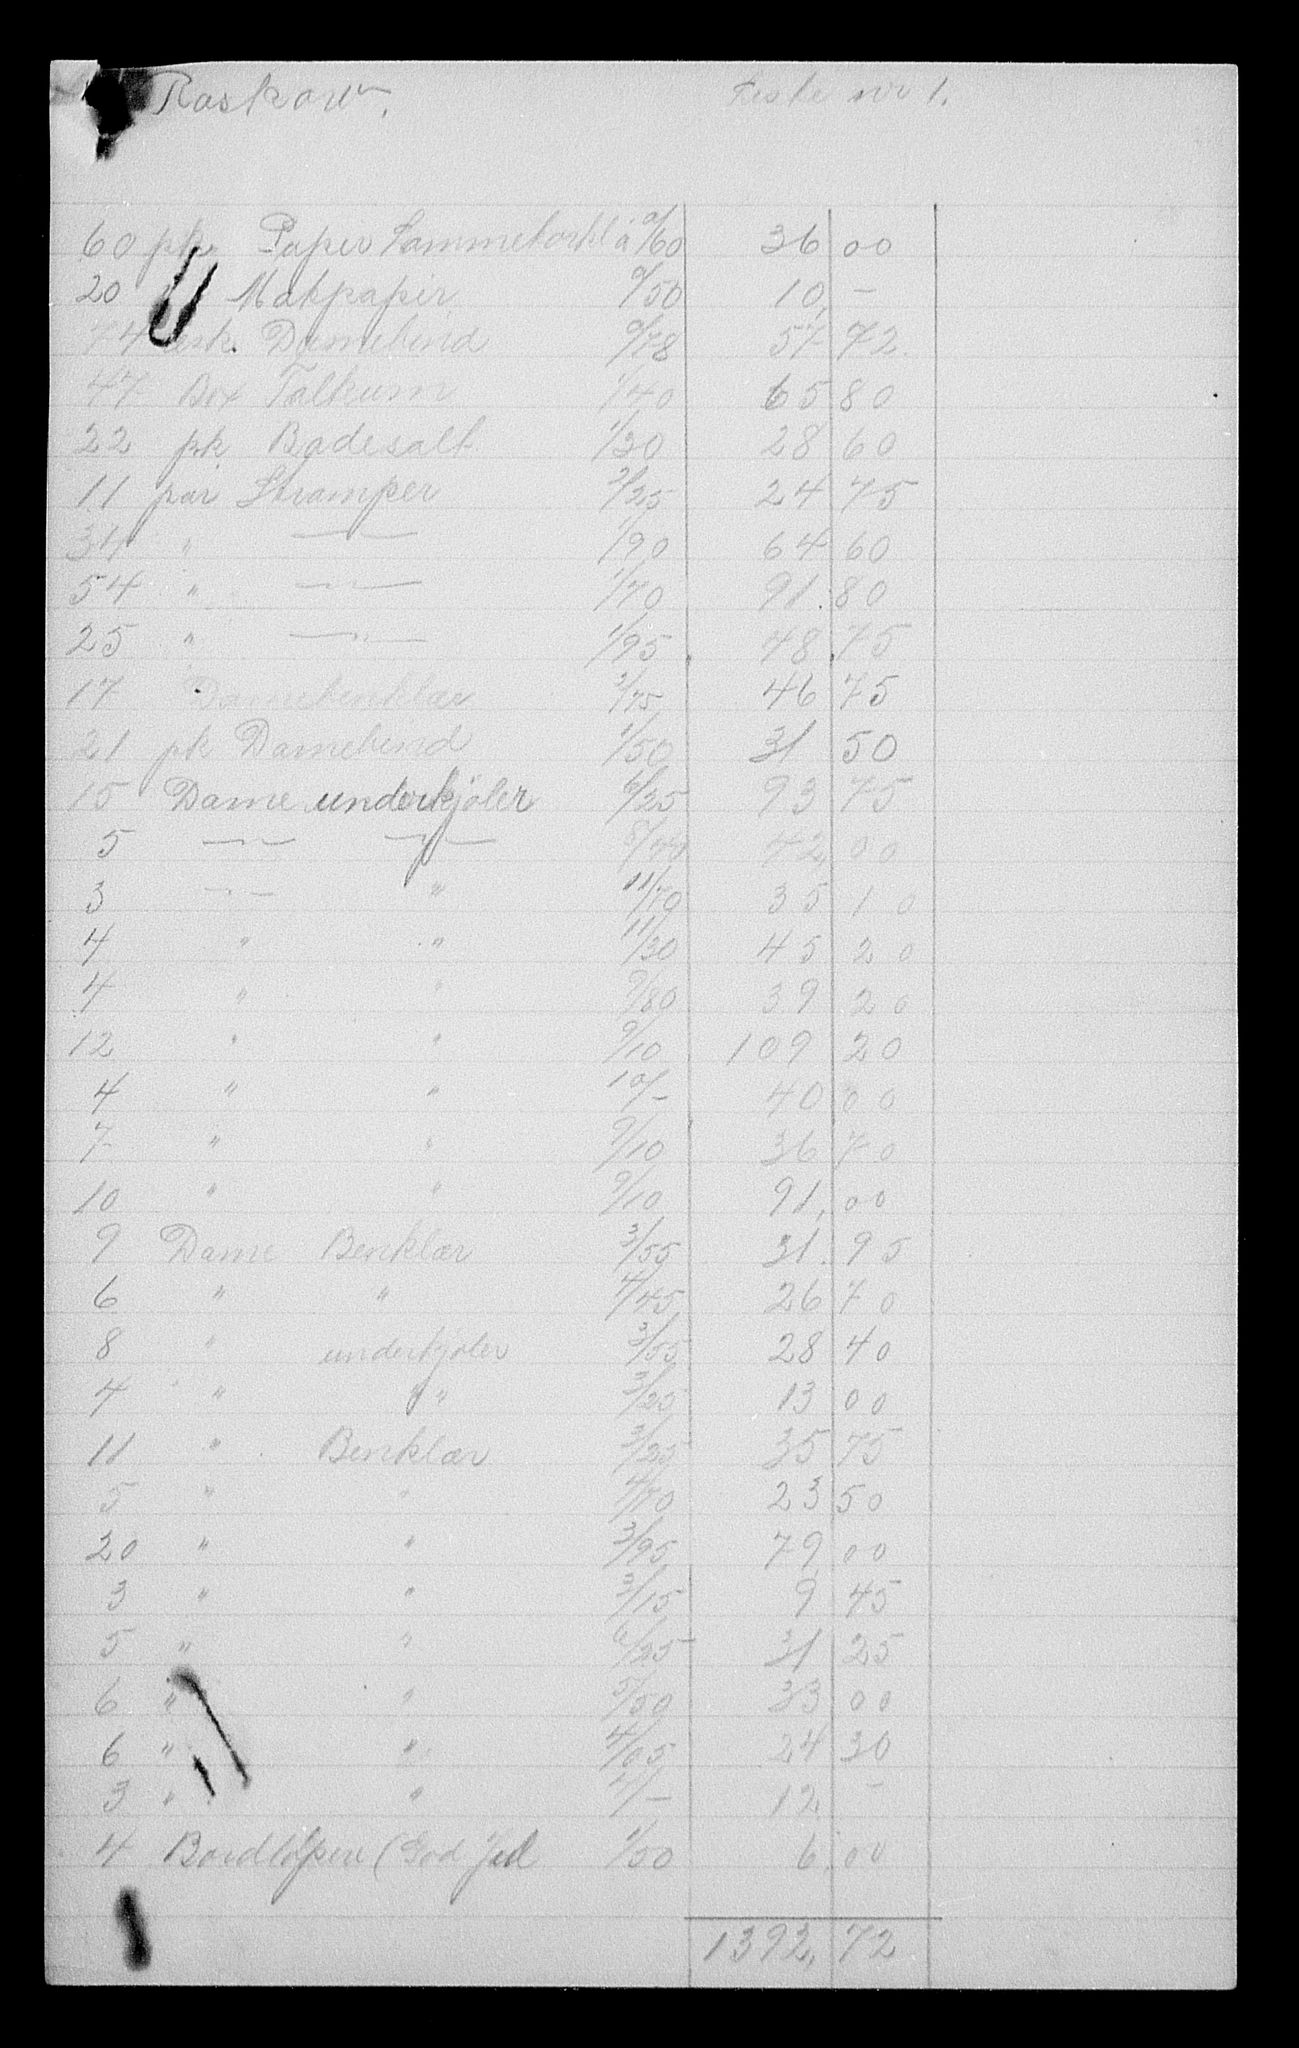 Raskow. Eske nr 1.
60 pk Papir Lommetörkl á 0/60 36 00
20 " Matpapir 0/50 10, -
74 esk. Damebind 0/78 57 72
47 Box Talkum 1/40 65 80
22 pk Badesalt 1/30 28 60
11 par Strømper 2/25 24 75
34 " —"— 1/90 64 60
54 " —"— 1/70 91 80
25 " —"— 1/95 48 75
17 Damebenklær 2/75 46 75
21 pk Damebind 1/50 31 50
15 Dame underkjöler 6/25 93 75
5 —"— —"— 8/40 42, 00
3 —"— " 11/70 35 10
4 " " 11/30 45 20
4 " " 9/80 39 20
12 " " 9/10 109 20
4 " " 10/- 40 00
7 " " 9/10 36 70
10 " " 9/10 91, 00
9 Dame Benklær 3/55 31. 95
6 " " 4/45 26 70
8 " underkjöler 3/55 28 40
4 " " 3/25 13 00
11 " Benklær 3/25 35 75
5 " " 4/70 23 50
20 " " 3/95 79 00
3 " " 3/15 9 45
5 " " 6/25 31 25
6 " " 5/50 33 00
6 " " 4/05 24 30
3 " " 4/- 12 -
4 Bordlöpere (God Jul 1/50 6 00
1392, 72